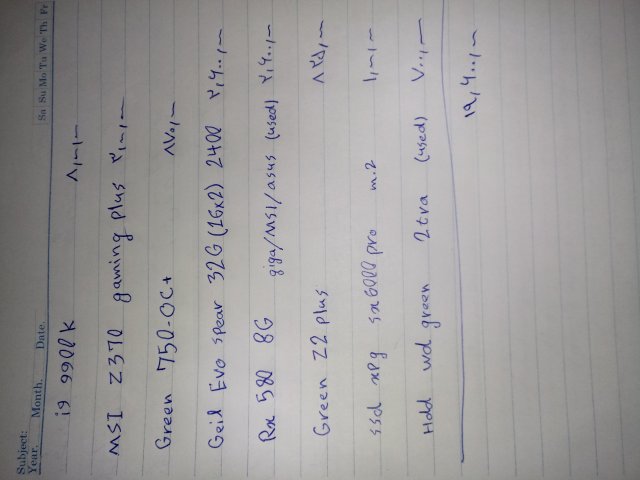 Subject:
Year. Month. Date. Sa Su Mo Tu We Th Fr
i9 9900k ۸,۰۰۰,۰۰۰
MSI Z370 gaming plus ۲,۰۰۰,۰۰۰
Green 750-OC+ ۸۷۰,۰۰۰
Geil Evo spear 32G (16x2) 2400 ۲,۶۰۰,۰۰۰
Rx 580 8G giga/MSI/asus (used) ۲,۶۰۰,۰۰۰
Green Z2 plus ۸۳۵,۰۰۰
ssd xpg sx6000 pro m.2 ۱,۰۰۰,۰۰۰
Hdd wd green 2tra (used) ۷۰۰,۰۰۰